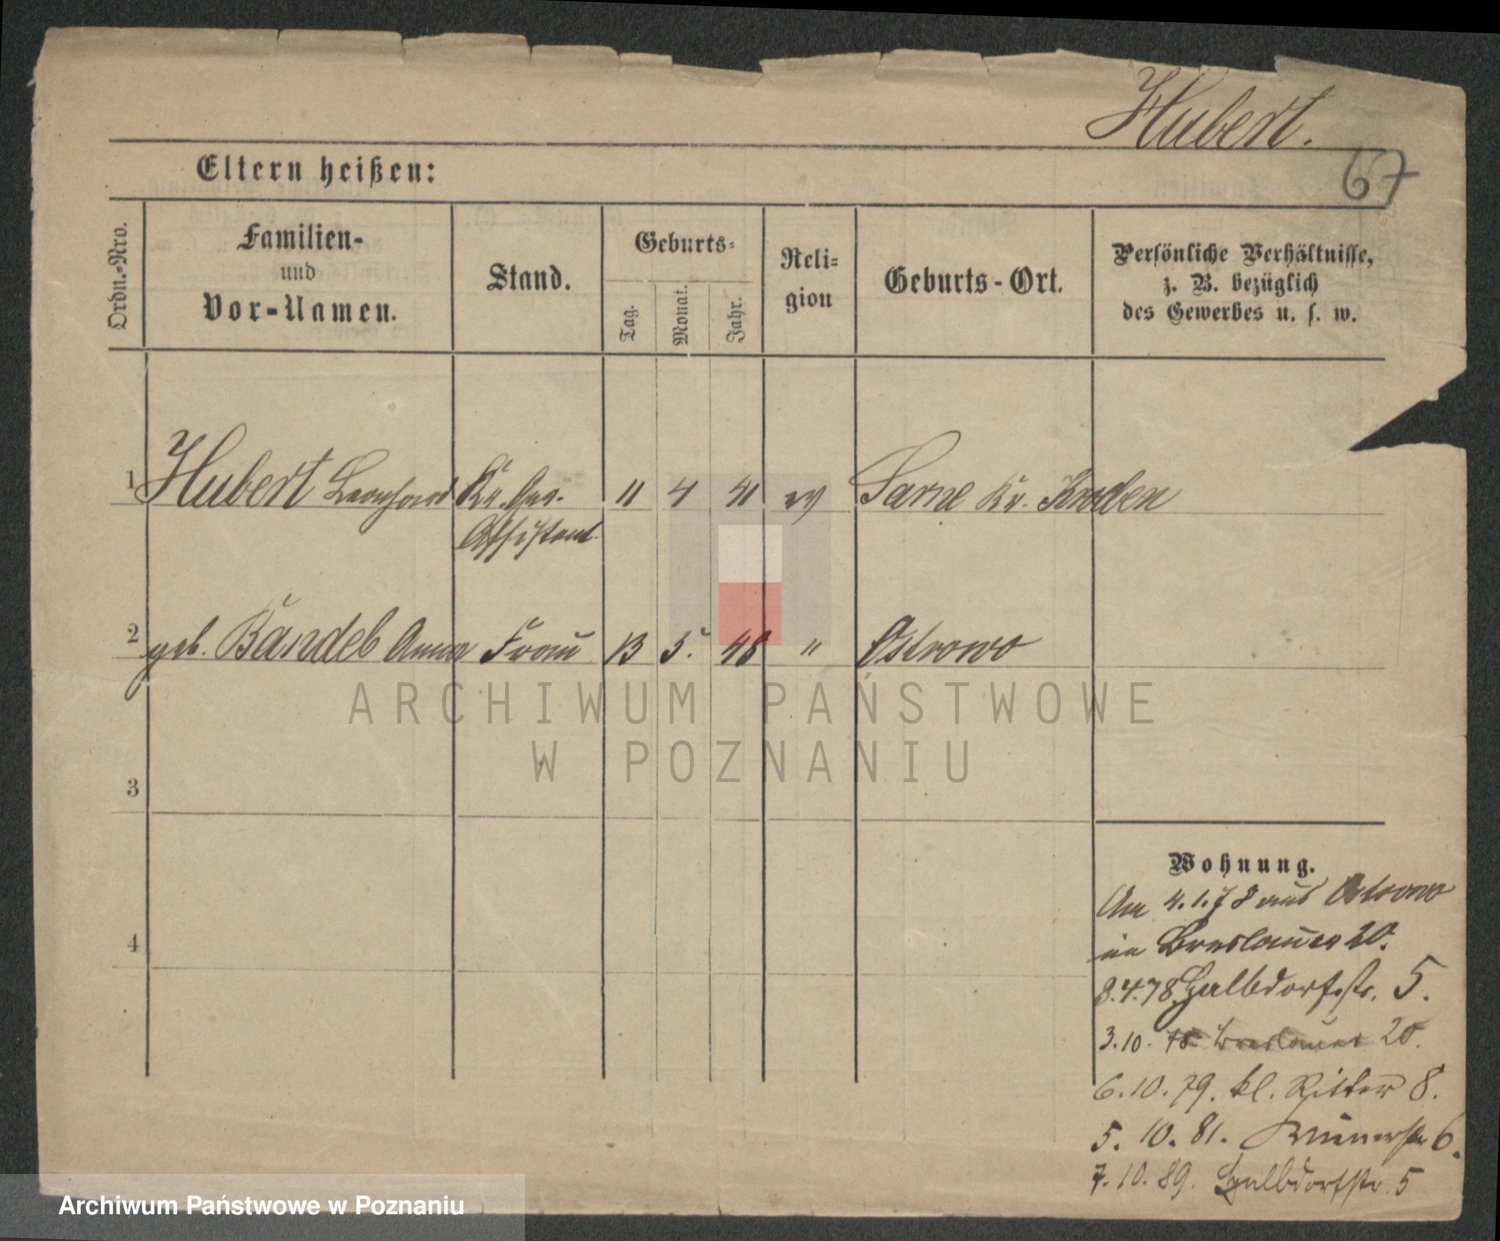 Hubert.
67
Eltern heißen:
Ordn.-Nro.
Familien-
und
Vor-Namen.
Stand.
Geburts-
Tag.
Monat.
Jahr.
Reli-
gion
Geburts-Ort.
Persönliche Verhältnisse,
z. B. bezüglich
des Gewerbes u. s. w.
1 Hubert Leonhard Kr. Ger. 11 4 41 ev Sarne Kr. Kroeben
Assistent
2 geb. Bändel Anna Frau 13 5. 48 " Ostrowo
ARCHIWUM PAŃSTWOWE
W POZNANIU
3
Wohnung.
Am 4.1.78 aus Ostrowo
in Breslauer 20.
8.4.78 Halbdorfstr. 5.
4
3.10. 78 Breslauer 20.
6.10.79. kl. Ritter 8.
5. 10. 81. 6.
7.10.89. Halbdorfstr. 5
Archiwum Państwowe w Poznaniu